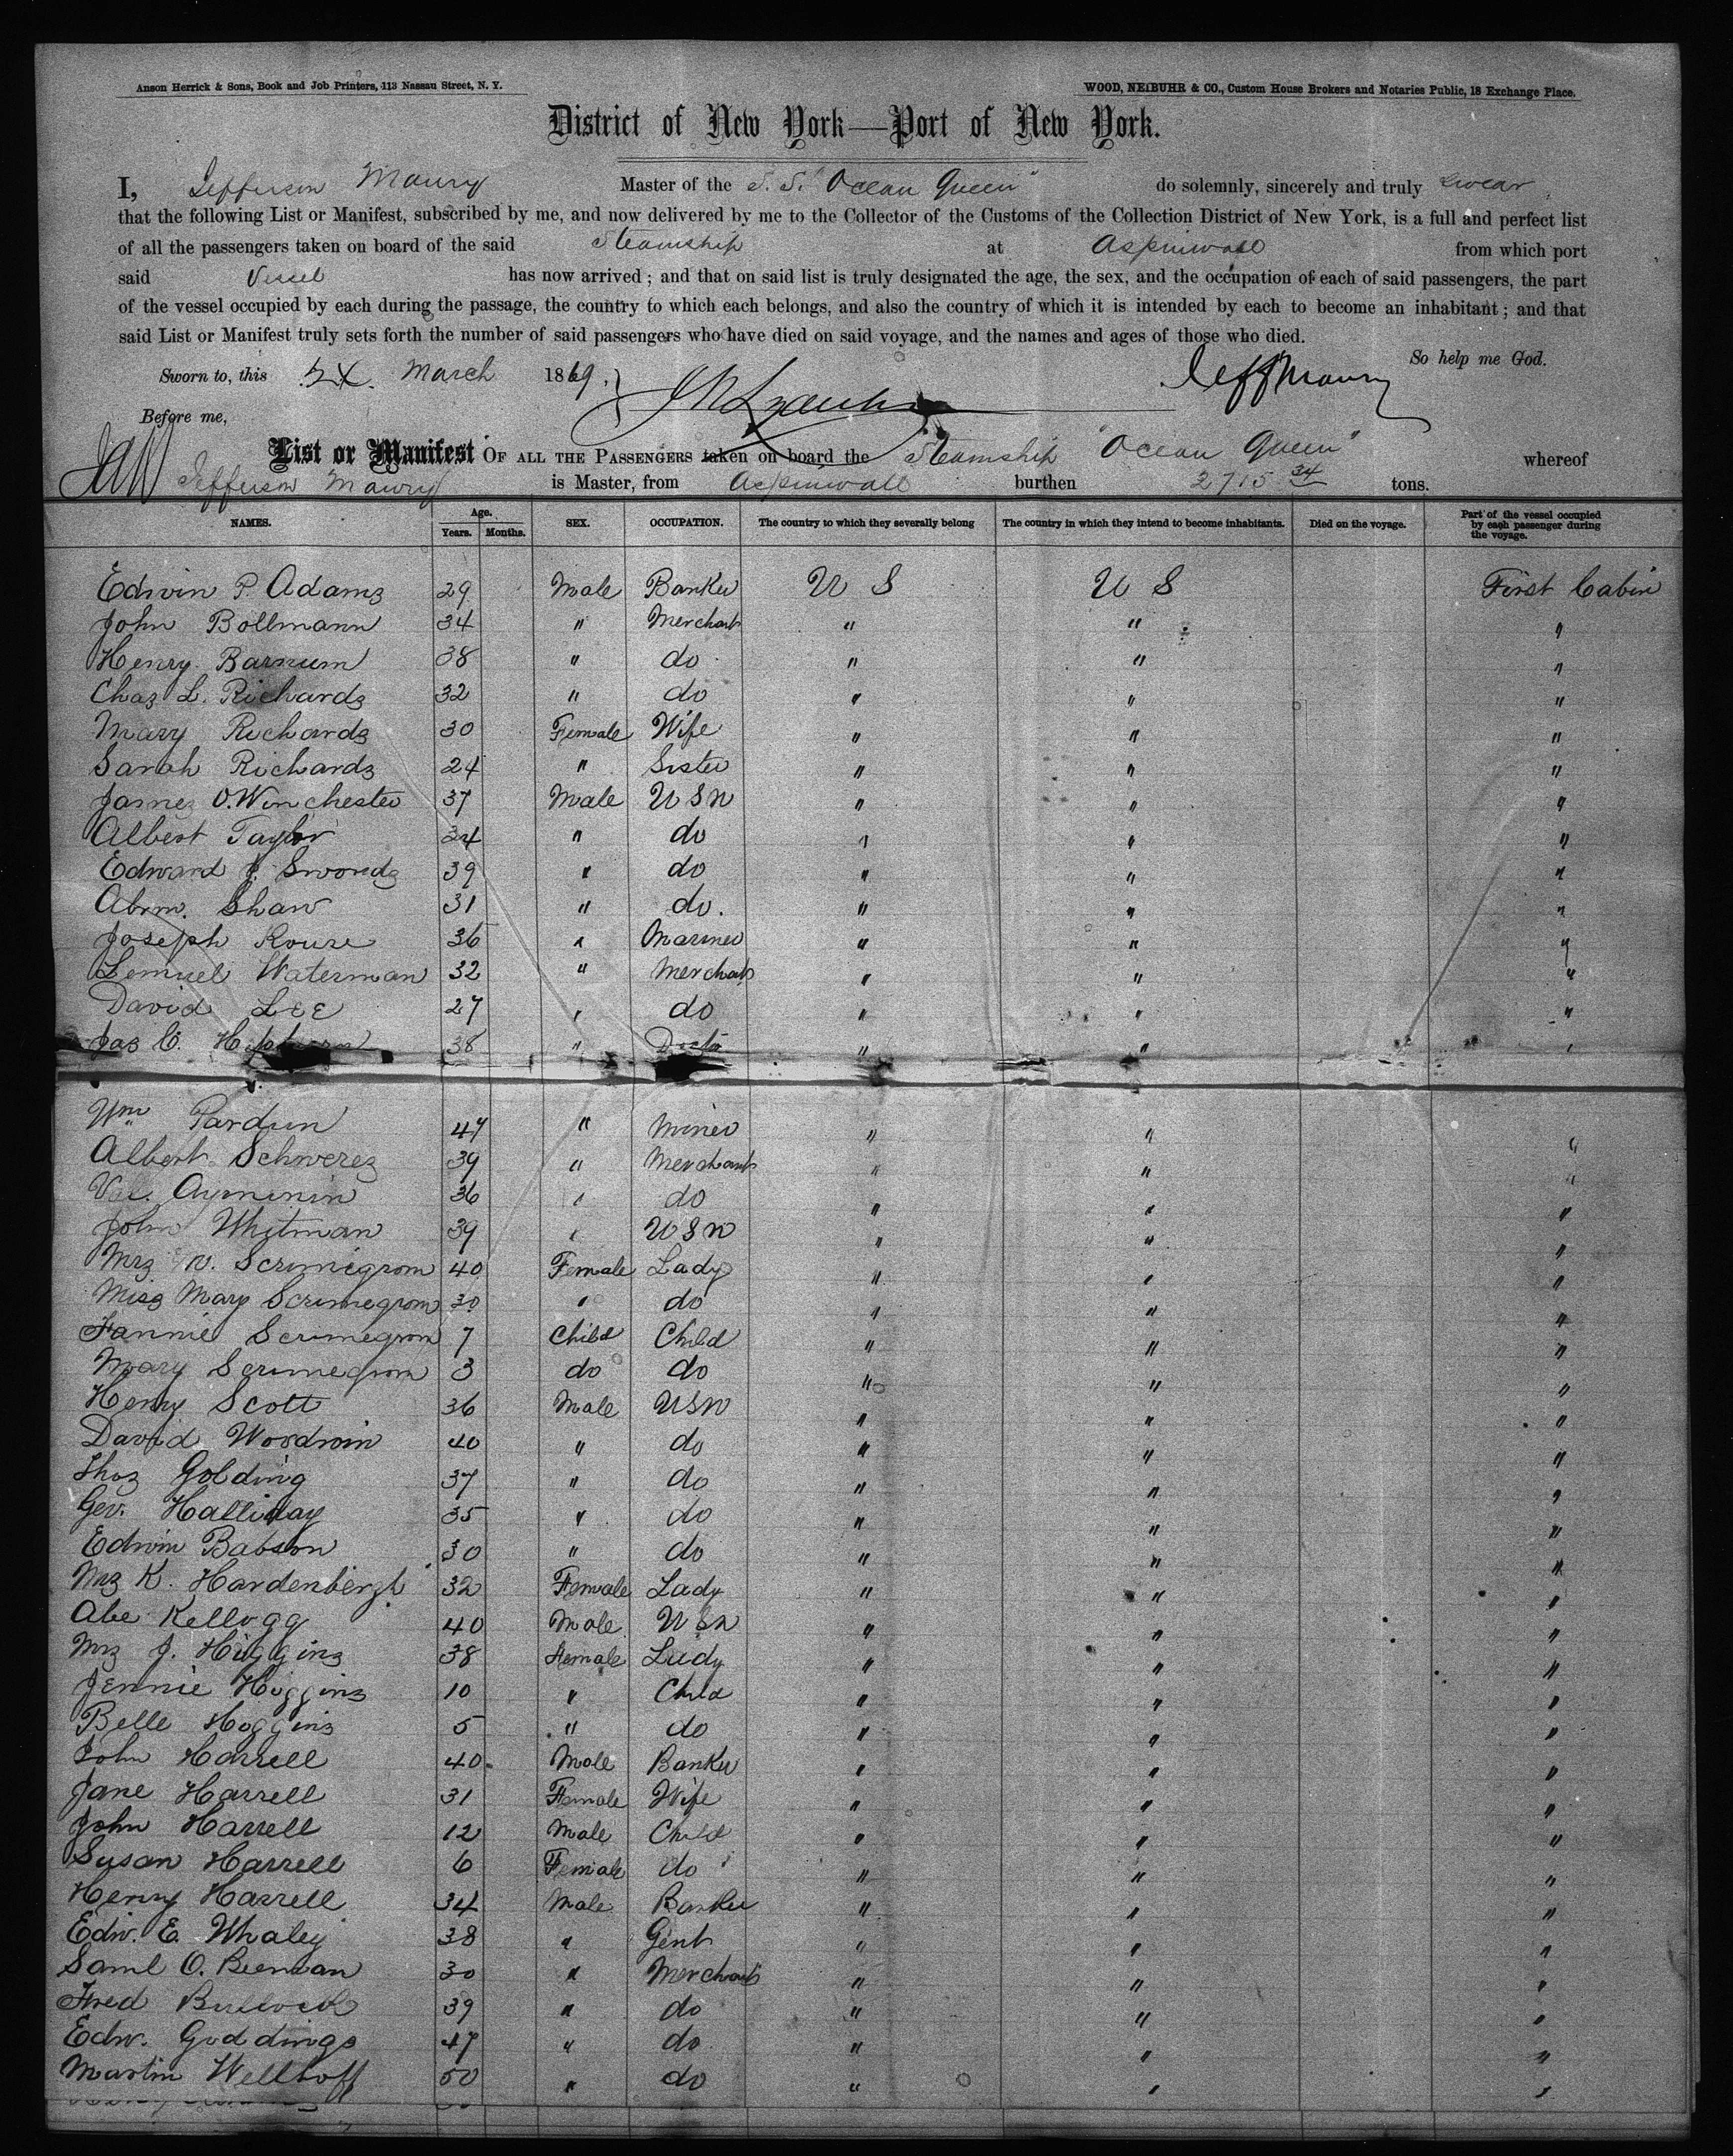 Anson Herrick & Sons, Book and Job Printers, 113 Nassau Street, N. Y.
WOOD, NEIBUHR & CO., Custom House Brokers and Notaries Public, 18 Exchange Place.
District of New York—Port of New York.
I, Jefferson Maury Master of the S. S. "Ocean Queen" do solemnly, sincerely and truly swear
that the following List or Manifest, subscribed by me, and now delivered by me to the Collector of the Customs of the Collection District of New York, is a full and perfect list
of all the passengers taken on board of the said Steamship at Aspinwall from which port
said Vessel has now arrived; and that on said list is truly designated the age, the sex, and the occupation of each of said passengers, the part
of the vessel occupied by each during the passage, the country to which each belongs, and also the country of which it is intended by each to become an inhabitant; and that
said List or Manifest truly sets forth the number of said passengers who have died on said voyage, and the names and ages of those who died.
So help me God.
Sworn to, this March 1869. Jeff Maury
Before me,
List or Manifest OF ALL THE PASSENGERS taken on board the Steamship "Ocean Queen" whereof
Jefferson Maury is Master, from Aspinwall burthen 2715 34 tons.
NAMES. Age. Years. Months. SEX. OCCUPATION. The country to which they severally belong The country in which they intend to become inhabitants. Died on the voyage. Part of the vessel occupied by each passenger during the voyage.
Edwin P. Adams 29 Male Banker U S U S First Cabin
John Bollmann 34 " Merchant " " "
Henry Barnum 38 " do " " "
Chas L. Richards 32 " do " " "
Mary Richards 30 Female Wife " " "
Sarah Richards 24 " Sister " " "
James O. Winchester 37 Male U S N " " "
Albert Taylor 34 " do " " "
Edward J. Swords 39 " do " " "
Abrm. Shaw 31 " do. " " "
Joseph Rouse 36 " Mariner " " "
Lemuel Waterman 32 " Merchant " " "
David Lee 27 " do " " "
Jas C. 38 " Doctor " " "
Wm Pardun 47 " Miner " " "
Albert Schwerez 39 " Merchant " " "
36 " do " " "
John Whitman 39 " U S N " " "
Mrs Scrimegrom 40 Female Lady " " "
Miss Mary Scrimegrom 30 " do " " "
Fannie Scrimegrom 7 Child Child " " "
Mary Scrimegrom 3 do do " " "
Henry Scott 36 Male U S N " " "
David Woodwin 40 " do " " "
Thos Golding 37 " do " " "
Geo. Halliday 35 " do " " "
Edwin Babson 30 " do " " "
Mrs K. Hardenbergh 32 Female Lady " " "
Abe Kellogg 40 Male U S N " " "
Mrs J. Higgins 38 Female Lady " " "
Jennie Higgins 10 " Child " " "
Belle Higgins 5 " do " " "
John Harrell 40 Male Banker " " "
Jane Harrell 31 Female Wife " " "
John Harrell 12 Male Child " " "
Susan Harrell 6 Female do " " "
Henry Harrell 34 Male Banker " " "
Edw. E. Whaley 38 " Gent " " "
Saml O. Beeman 30 " Merchant " " "
Fred Bullock 39 " do " " "
Edw. Goddings 47 " do " " "
Martin Wellhoff 50 " do " " "